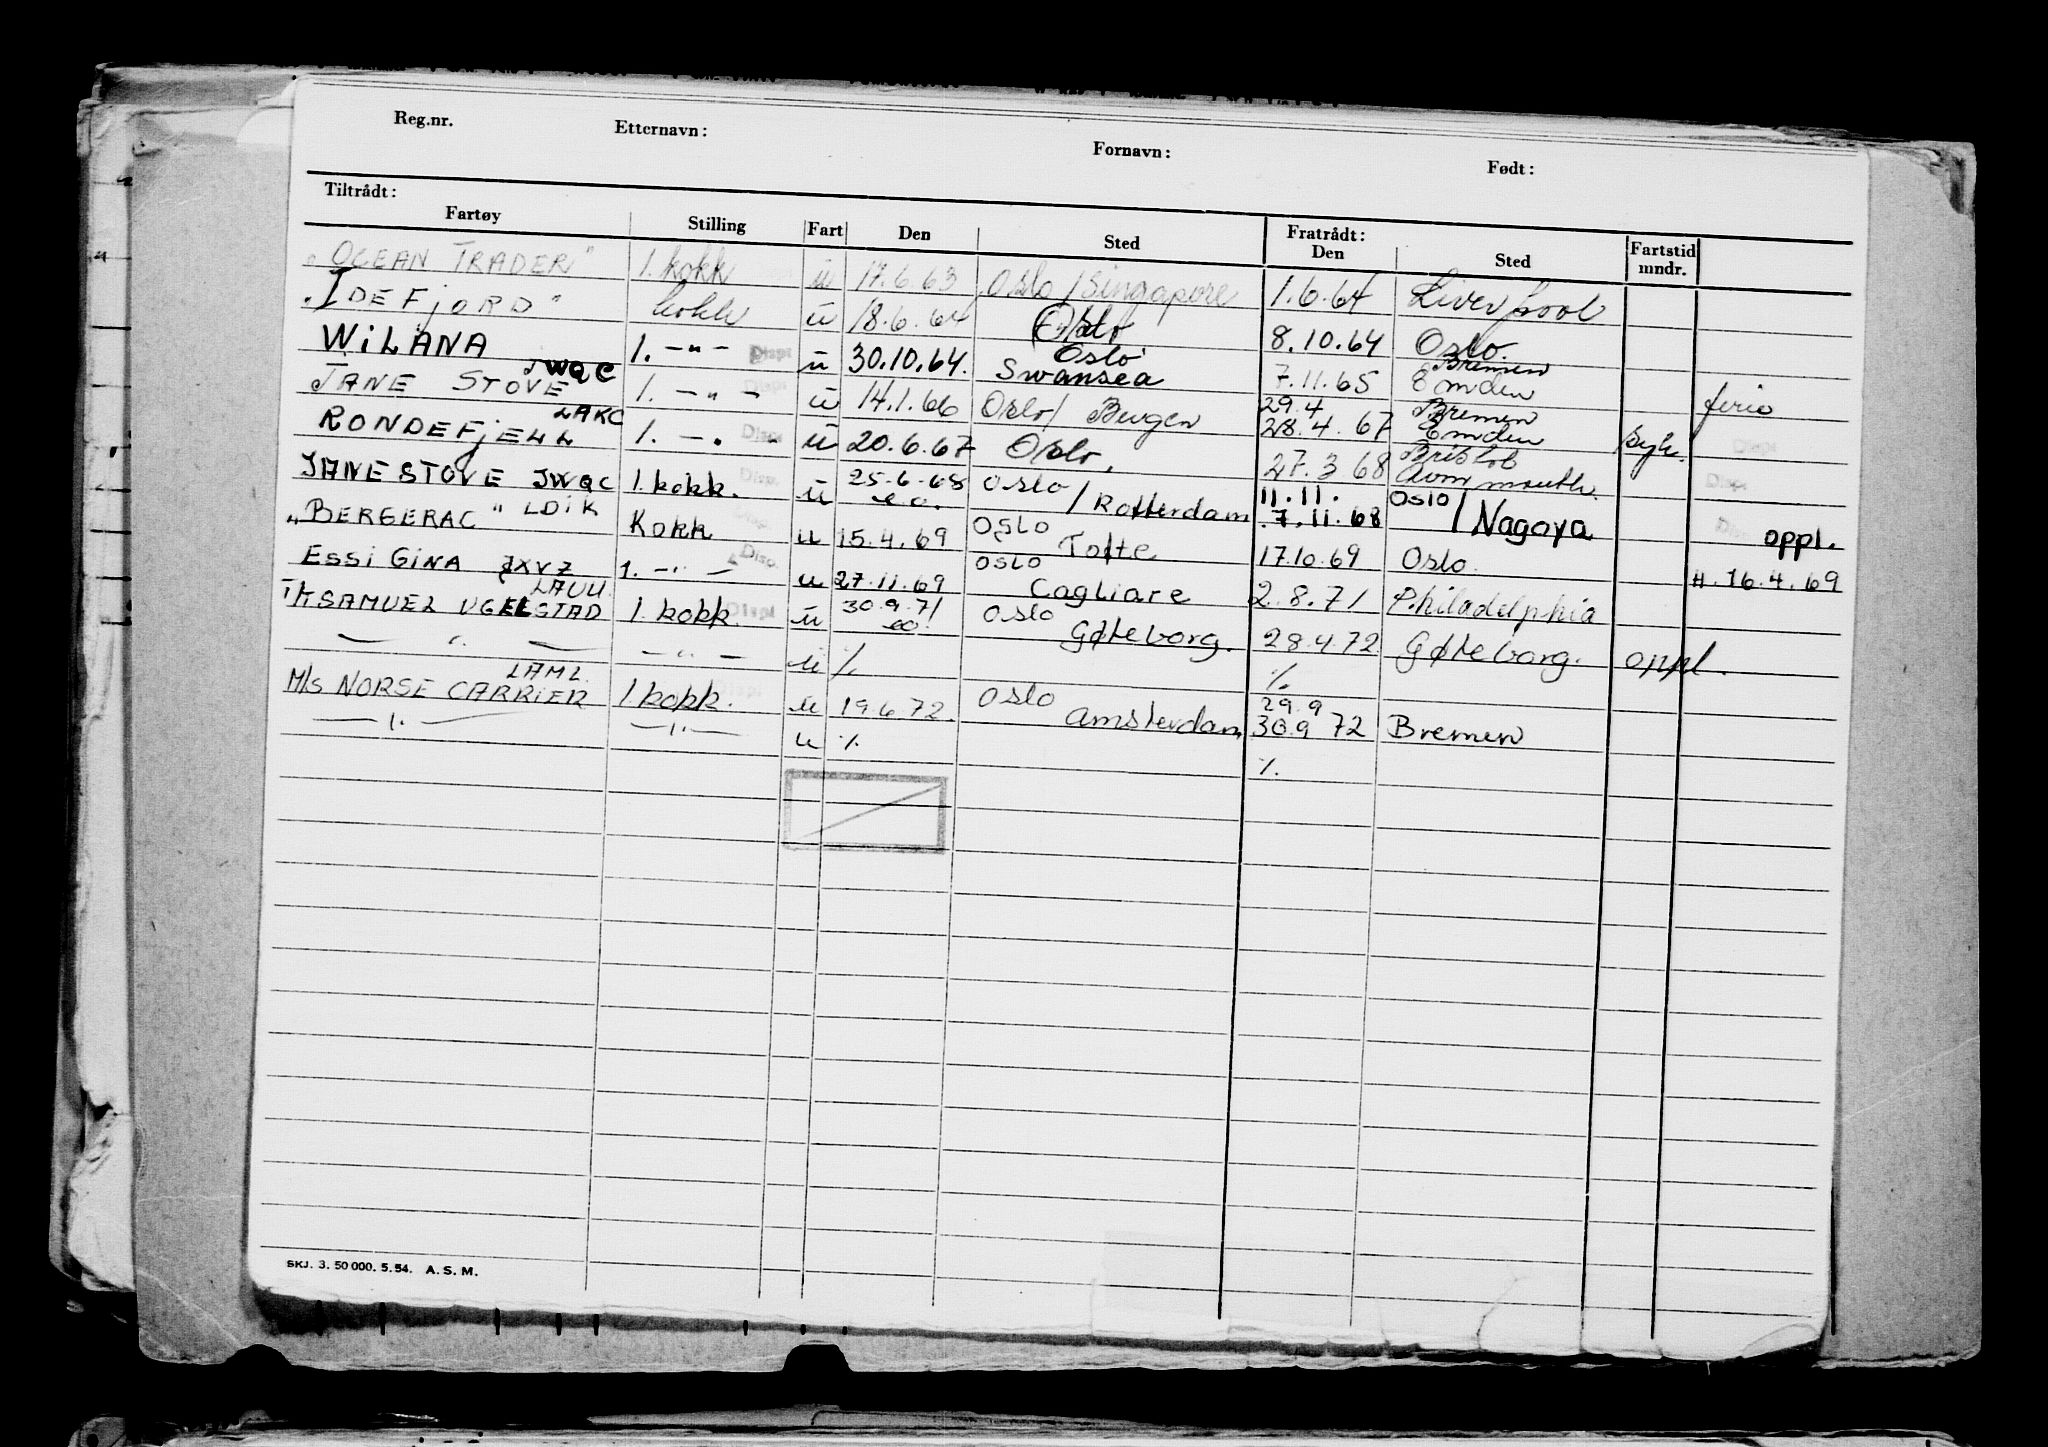 Reg.nr. Etternavn: Fornavn: Født:
Tiltrådt: Fratrådt:
Fartøy Stilling Fart Den Sted Den Sted Fartstid mndr.
"OCEAN TRADER" 1. kokk u 17.6.63 Oslo / Singapore 1.6.64 Liverpool
"IDEFJORD" kokk u 18.6.64 Oslo 8.10.64 Oslo.
WILANA 1. -"- Disp. u 30.10.64. Oslo Swansea 7.11.65 Bremen Emden ferie
JANE STOVE JWQC 1. -"- Disp. u 14.1.66 Oslo / Bergen 29.4 28.4.67 Bremen Emden syk.
RONDEFJELL LAKC 1. -"- Disp. u 20.6.67 Oslo, 27.3 68 Bristol Avonmouth. Disp.
JANE STOVE JWQC 1. kokk. Disp. u 25.6.68 Oslo / Rotterdam 11.11. 7.11.68 OSLO / Nagoya oppl.
"BERGERAC" LDIK Kokk u 15.4.69 OSLO Tofte 17.10.69 Oslo. 16.4.69
ESSI GINA JXVZ 1. -"- Disp. u 27.11.69 OSLO Cagliare 2.8.71 Philadelphia
T/K SAMUEL UGELSTAD LAUU 1. kokk. Disp. u 30.9.71 OSLO Gøteborg. 28.4.72 Gøteborg. oppl.
-"- -"- u % %
M/S NORSE CARRIER LAML 1. kokk. u 19.6.72. OSLO Amsterdam 29.9 30.9 72 Bremen
-"- -"- u % %
SKJ. 3. 50 000. 5. 54. A. S. M.